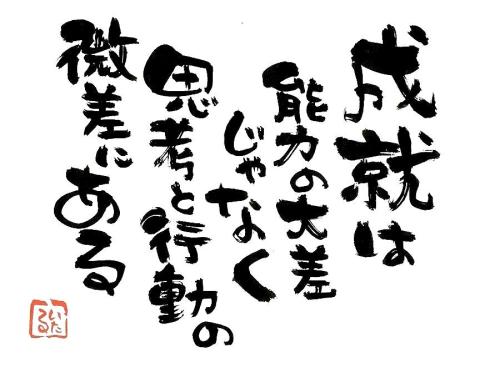 成就は
能力の大差
じゃなく
思考と行動の
微差にある
いた
る